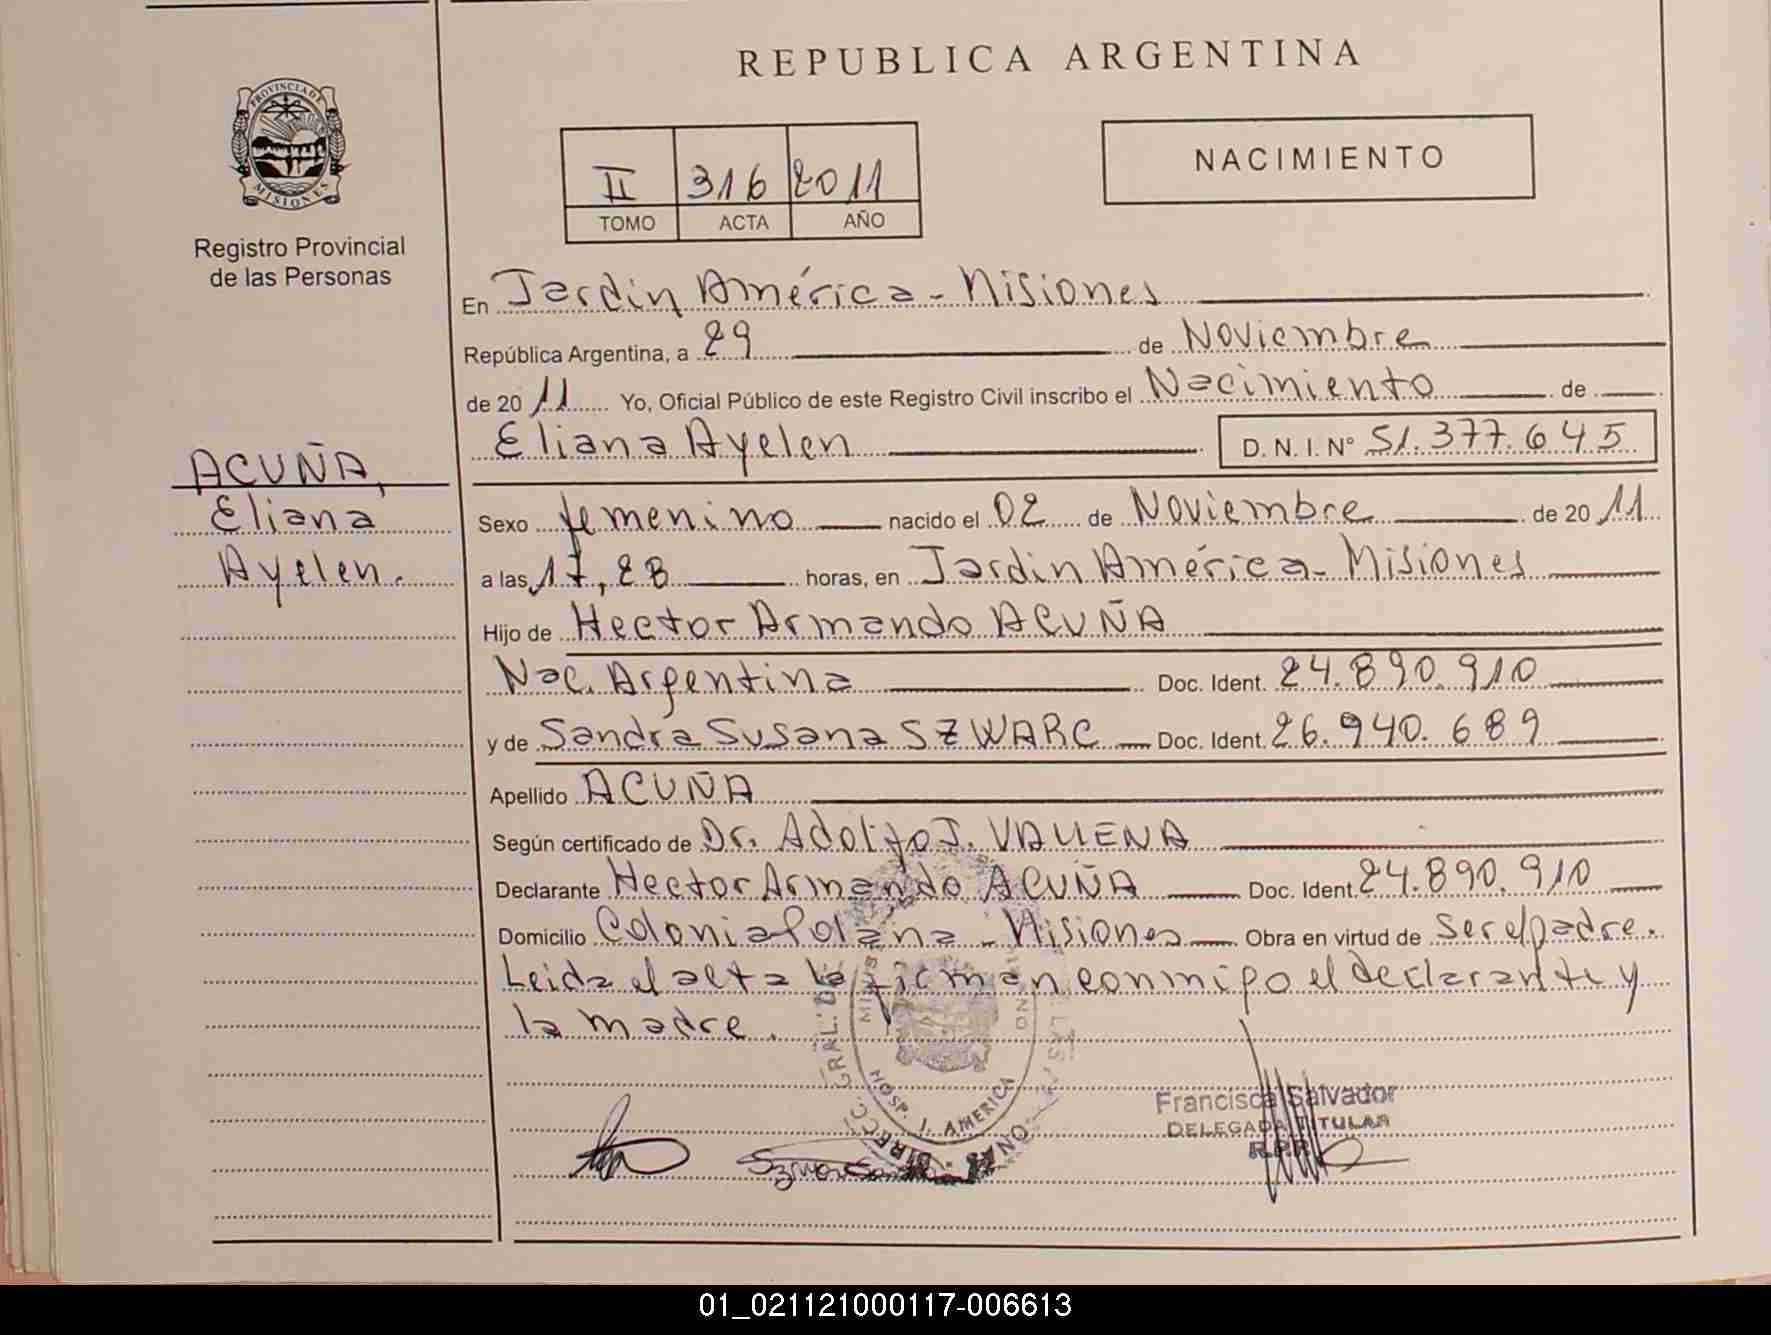 REPUBLICA ARGENTINA
PROVINCIA DE
MISIONES
Registro Provincial
de las Personas
II 316 2011
TOMO ACTA AÑO
NACIMIENTO
En Jardin América - Misiones
República Argentina, a 29 de Noviembre
de 20 11 Yo, Oficial Público de este Registro Civil inscribo el Nacimiento de
Eliana Ayelen D. N. I. N° 51.377.645
ACUÑA,
Eliana
Ayelen.
Sexo femenino nacido el 02 de Noviembre de 20 11
a las 17,28 horas, en Jardin América - Misiones
Hijo de Hector Armando ACUÑA
Nac. Argentina Doc. Ident. 24.890.910
y de Sandra Susana SZWARC Doc. Ident. 26.940.689
Apellido ACUÑA
Según certificado de Dr. Adolfo J. VALLENA
Declarante Hector Armando ACUÑA Doc. Ident. 24.890.910
Domicilio Colonia Polana - Misiones Obra en virtud de ser el padre.
Leida el acta la firman conmigo el declarante y
la madre.
HOSP. J. AMERICA
Francisca Salvador
DELEGADA TITULAR
R.P.P.
01_021121000117-006613